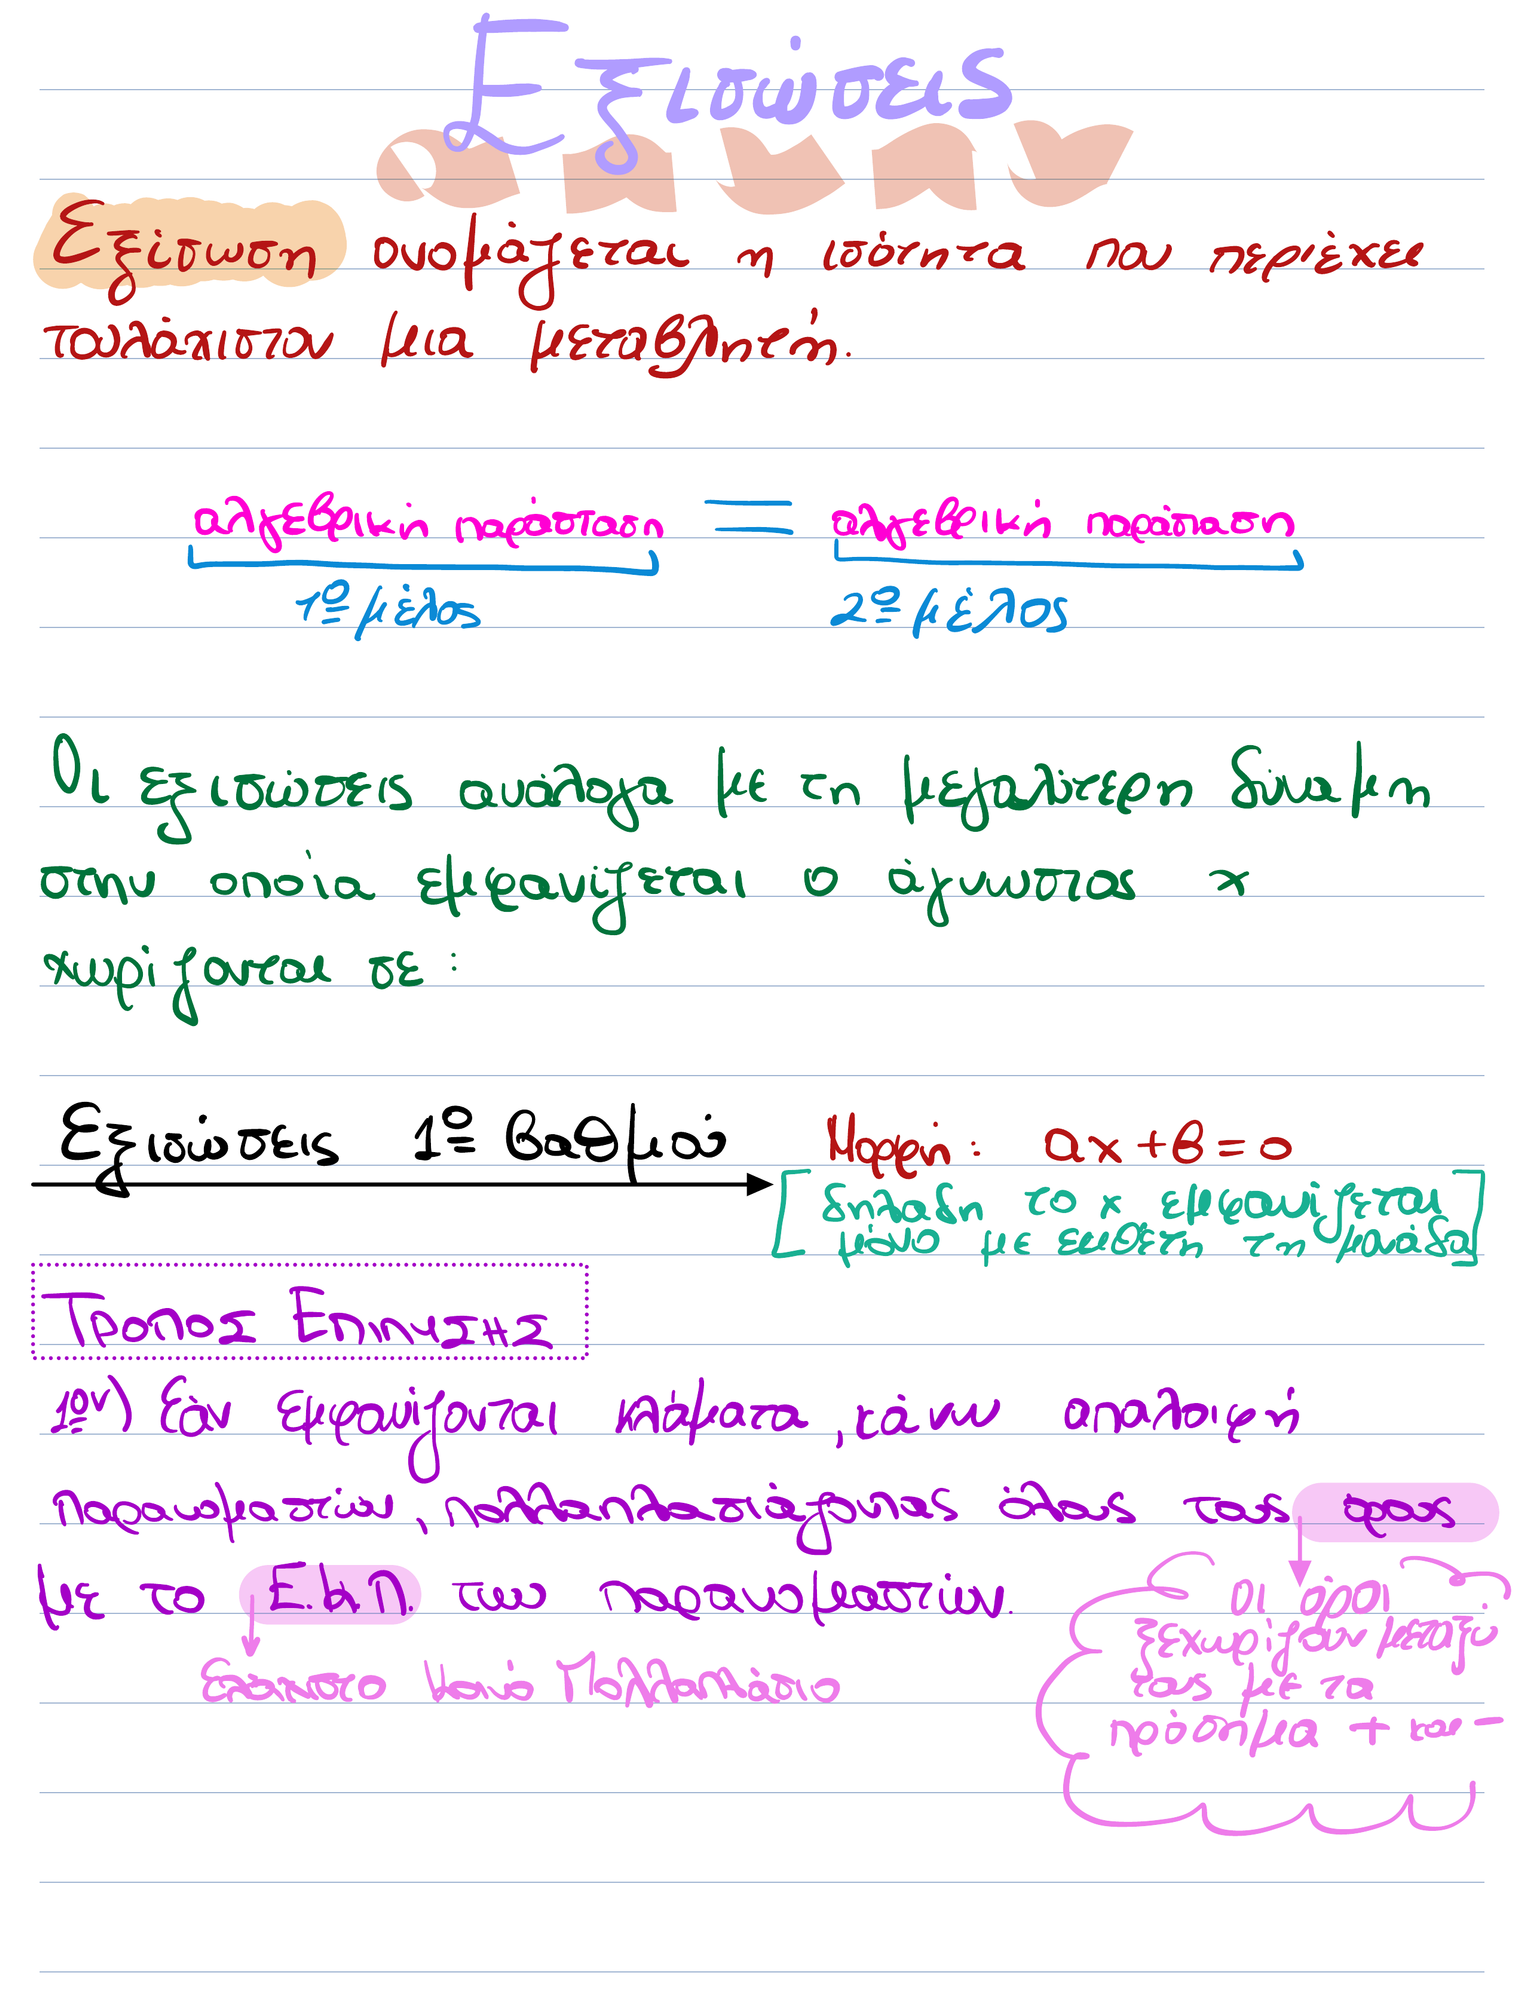 Εξισώσεις
Εξίσωση ονομάζεται η ισότητα που περιέχει
τουλάχιστον μια μεταβλητή.
αλγεβρική παράσταση = αλγεβρική παράσταση
1º μέλος 2º μέλος
Οι εξισώσεις ανάλογα με τη μεγαλύτερη δύναμη
στην οποία εμφανίζεται ο άγνωστος x
χωρίζονται σε:
Εξισώσεις 1º βαθμού Μορφή: αx+β=0
[δηλαδή το x εμφανίζεται
μόνο με εκθέτη τη μονάδα]
ΤΡΟΠΟΣ ΕΠΙΛΥΣΗΣ
1ºν) Εάν εμφανίζονται κλάματα, κάνω απαλοιφή
παρανομαστών, πολλαπλασιάζοντας όλους τους όρους
με το Ε.Κ.Π. των παρανομαστών.
οι όροι
ξεχωρίζουν μεταξύ
τους με τα
πρόσημα + και -
Ελάχιστο Κοινό Πολλαπλάσιο